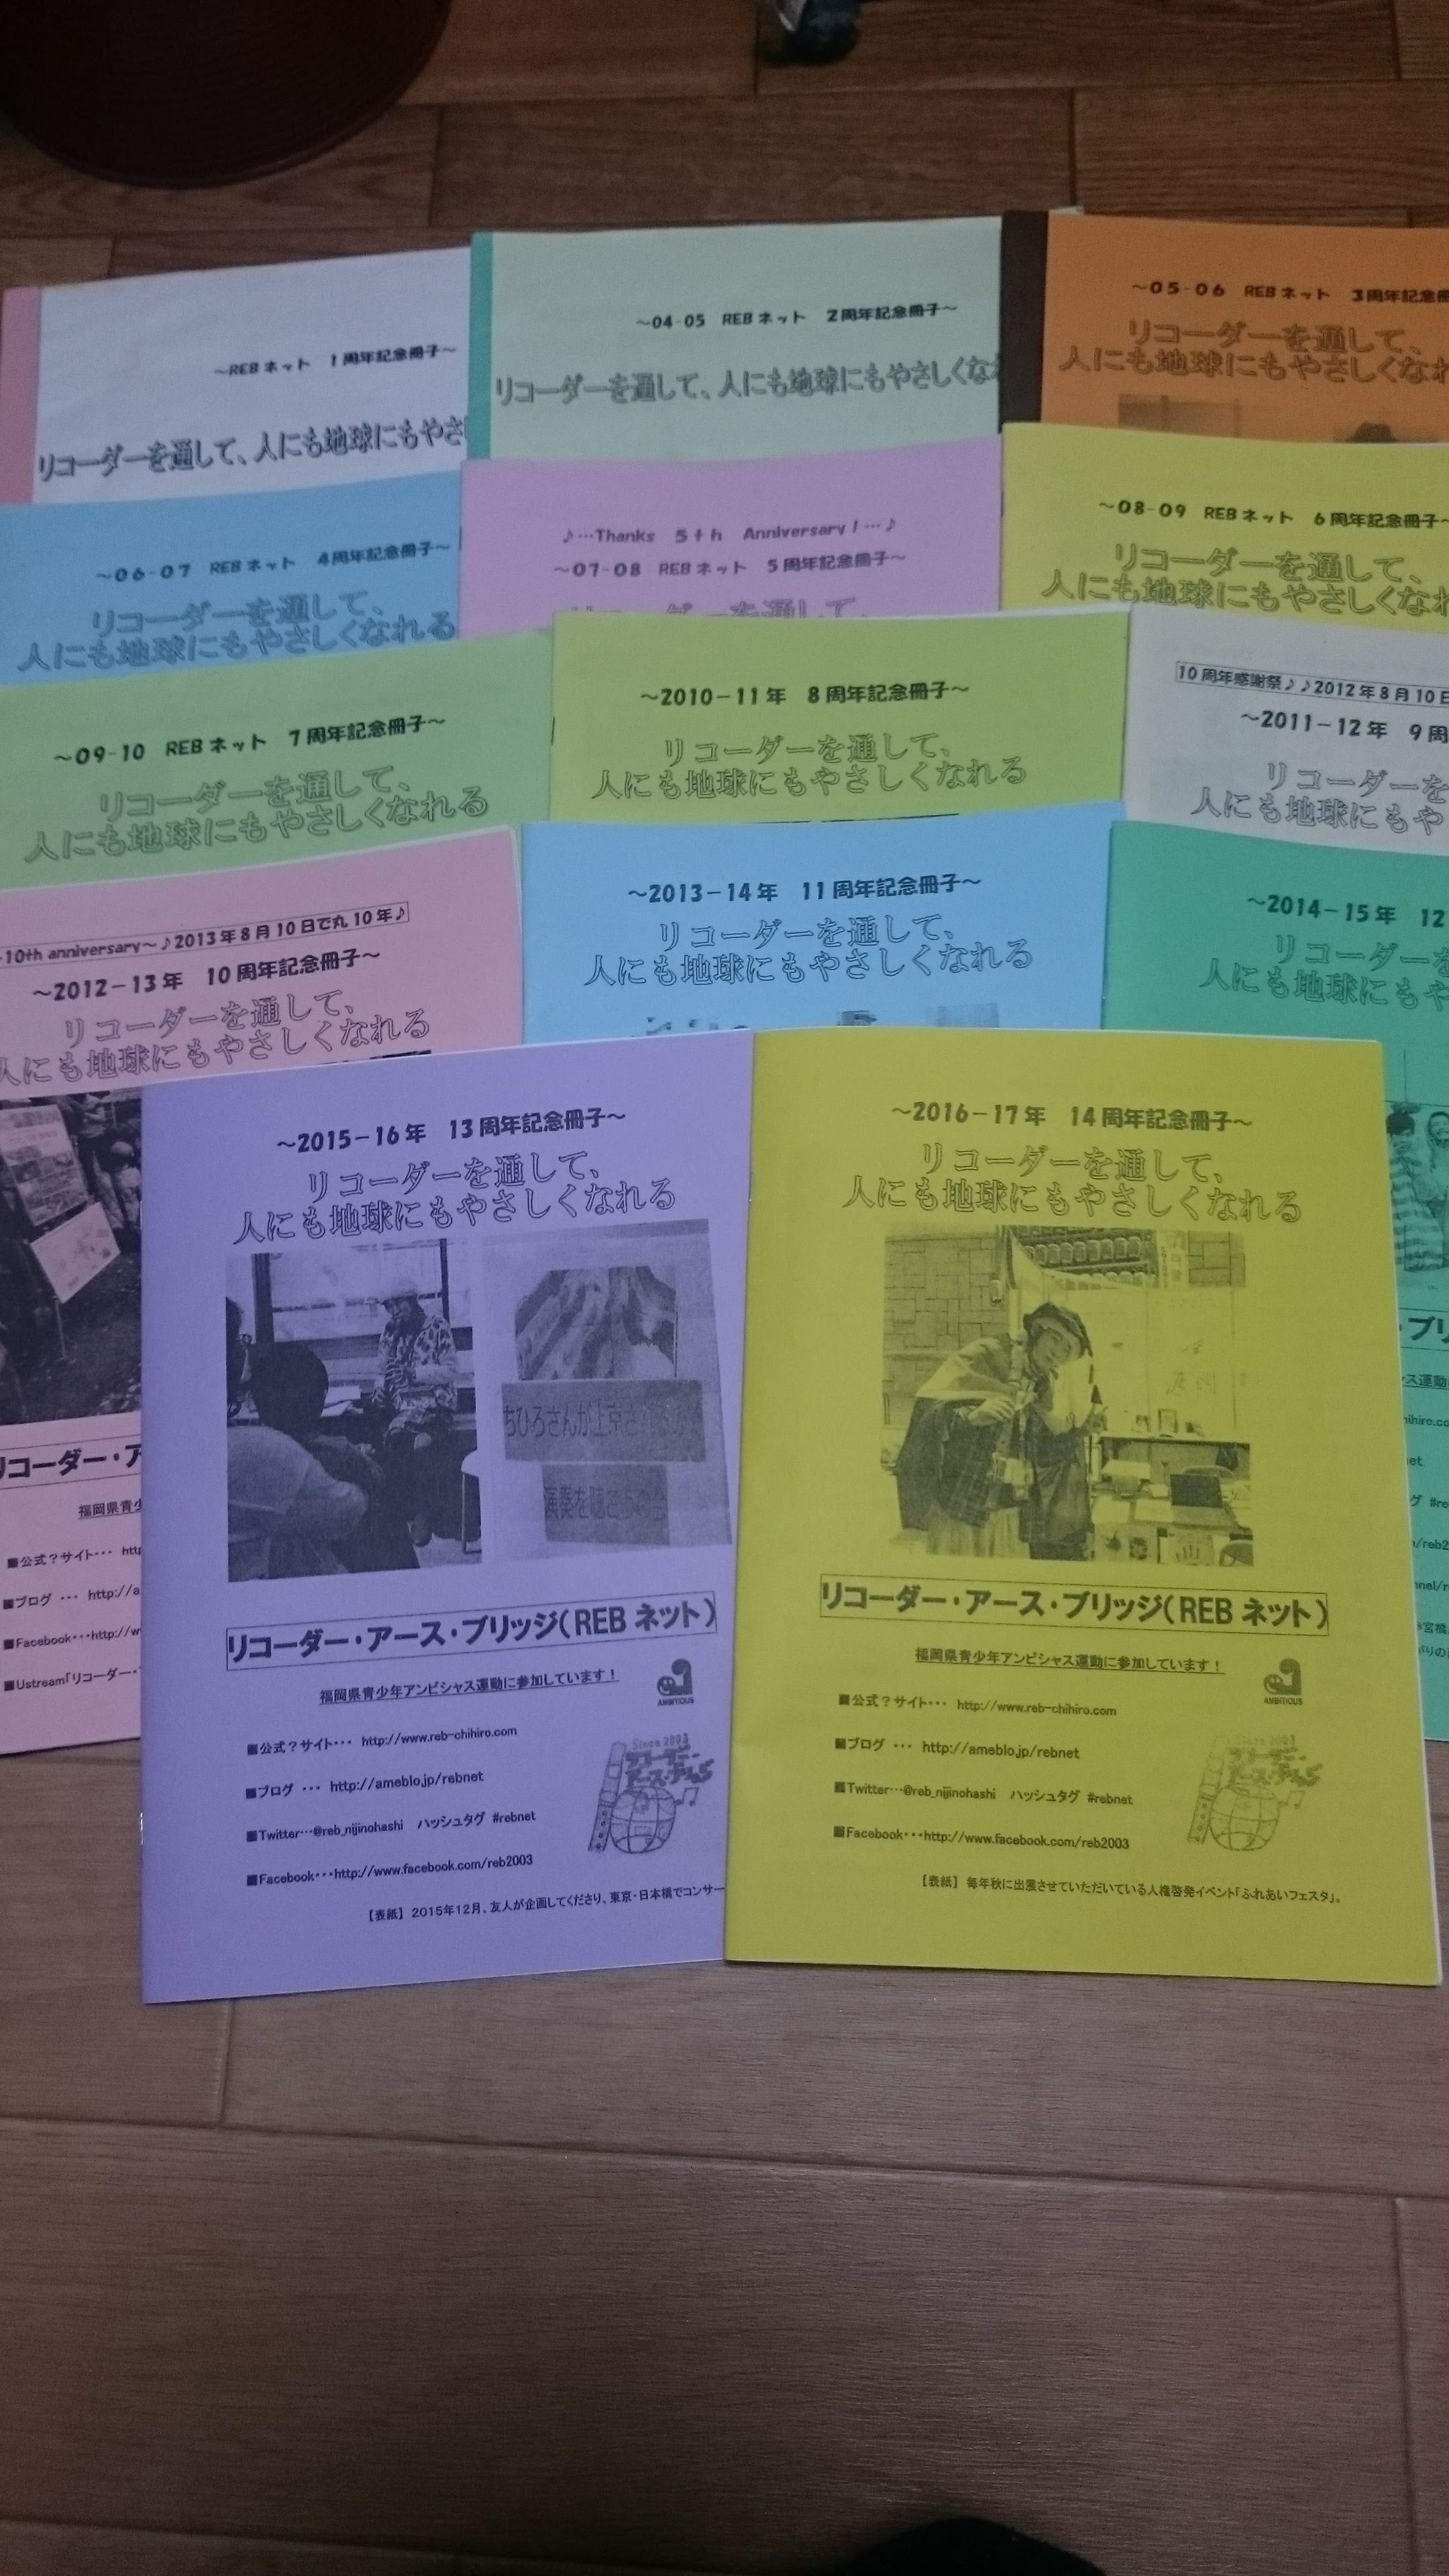 ~REBネット 1周年記念冊子~
リコーダーを通して、人にも地球にもやさ
~04-05 REBネット 2周年記念冊子~
リコーダーを通して、人にも地球にもやさしくな
~05-06 REBネット 3周年記念冊
リコーダーを通して、
人にも地球にもやさしくなれ
~06-07 REBネット 4周年記念冊子~
リコーダーを通して、
人にも地球にもやさしくなれる
♪…Thanks 5th Anniversary!…♪
~07-08 REBネット 5周年記念冊子~
リコーダーを通して、
~08-09 REBネット 6周年記念冊子~
リコーダーを通して、
人にも地球にもやさしくなれ
~09-10 REBネット 7周年記念冊子~
リコーダーを通して、
人にも地球にもやさしくなれる
~2010-11年 8周年記念冊子~
リコーダーを通して、
人にも地球にもやさしくなれる
10周年感謝祭♪♪2012年8月10日
~2011-12年 9周
リコーダーを
人にも地球にもや
10th anniversary~♪2013年8月10日で丸10年♪
~2012-13年 10周年記念冊子~
リコーダーを通して、
人にも地球にもやさしくなれる
リコーダー・ア
福岡県青少
■公式?サイト… htt
■ブログ … http://a
■Facebook…http://w
■Ustream「リコーダー・
~2013-14年 11周年記念冊子~
リコーダーを通して、
人にも地球にもやさしくなれる
~2014-15年 12
リコーダーを
人にも地球にもや
・ブリ
ス運動
hihiro.co
et
グ #re
/reb2
nnel/r
宮橋
がりの
~2015-16年 13周年記念冊子~
リコーダーを通して、
人にも地球にもやさしくなれる
ちひろさんが上京
演奏を聴こうの会
リコーダー・アース・ブリッジ(REBネット)
福岡県青少年アンビシャス運動に参加しています!
AMBITIOUS
■公式?サイト… http://www.reb-chihiro.com
■ブログ … http://ameblo.jp/rebnet
■Twitter…@reb_nijinohashi ハッシュタグ #rebnet
■Facebook…http://www.facebook.com/reb2003
Since 2003
リコーダー
アース・ブリッジ
【表紙】2015年12月、友人が企画してくださり、東京・日本橋でコンサー
~2016-17年 14周年記念冊子~
リコーダーを通して、
人にも地球にもやさしくなれる
リコーダー・アース・ブリッジ(REBネット)
福岡県青少年アンビシャス運動に参加しています!
AMBITIOUS
■公式?サイト… http://www.reb-chihiro.com
■ブログ … http://ameblo.jp/rebnet
■Twitter…@reb_nijinohashi ハッシュタグ #rebnet
■Facebook…http://www.facebook.com/reb2003
Since 2003
リコーダー
アース・ブリッジ
【表紙】毎年秋に出展させていただいている人権啓発イベント「ふれあいフェスタ」。